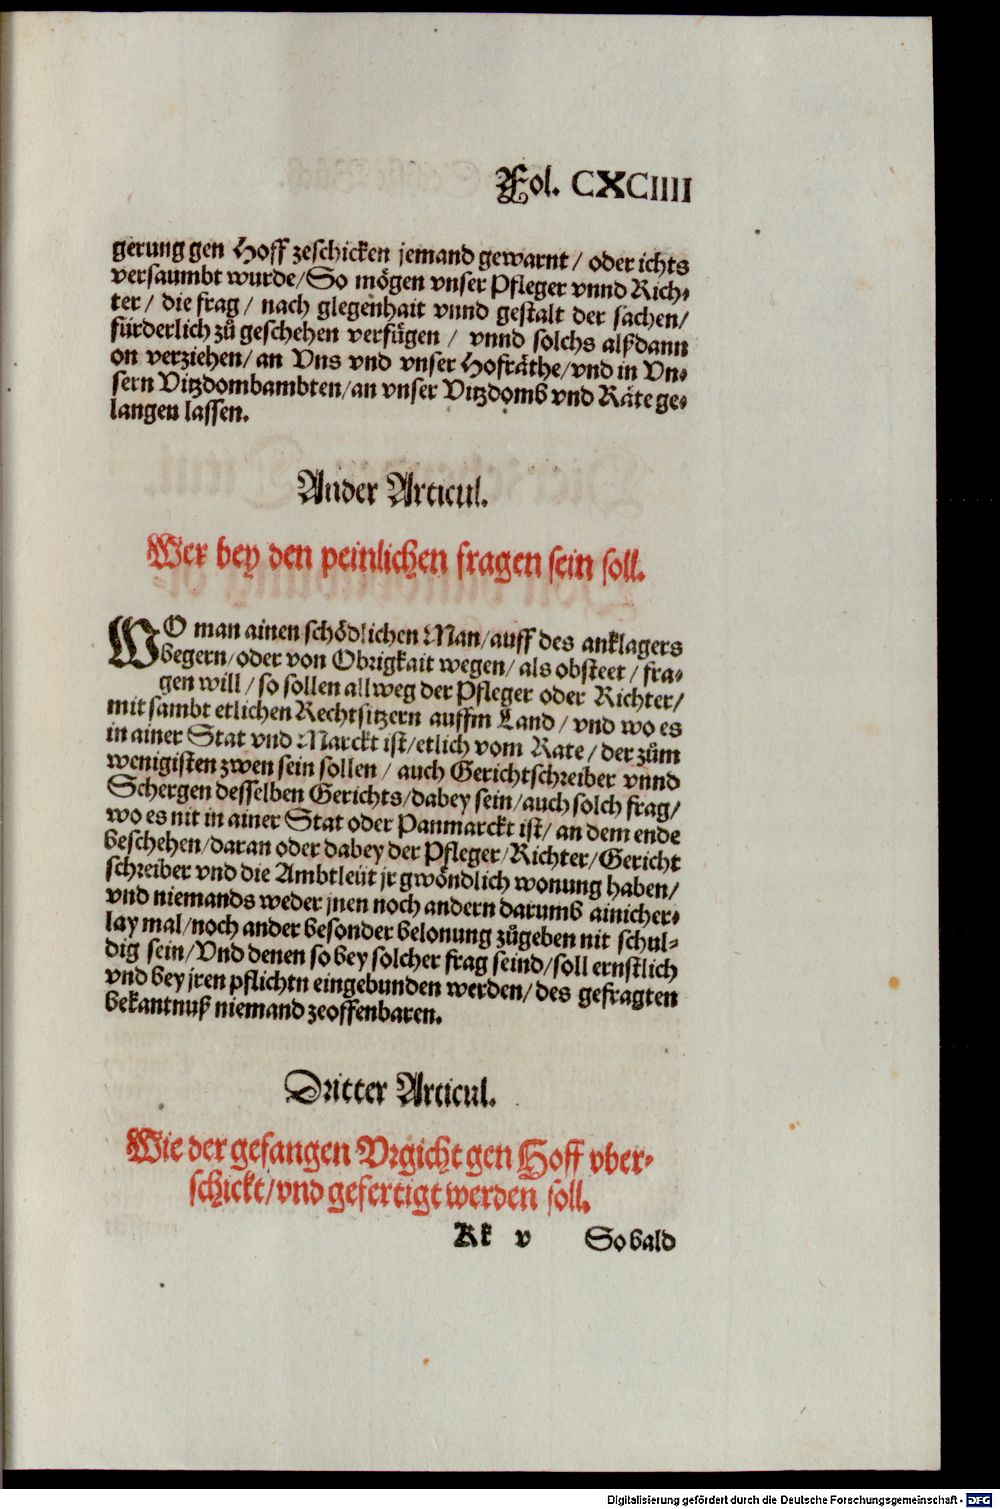 Fol. CXCIIII
gerung gen Hoff zeschicken jemand gewarnt / oder ichts
versaumbt wurde / So mögen vnser Pfleger vnnd Rich⸗
ter / die frag / nach glegenhait vnnd gestalt der sachen /
fürderlich zů geschehen verfügen / vnnd solchs alßdann
on verziehen / an Vns vnd vnser Hofräthe / vnd in Vn⸗
sern Vitzdombambten / an vnser Vitzdomb vnd Räte ge⸗
langen lassen.
Ander Articul.
Wer bey den peinlichen fragen sein soll.
WO man ainen schödlichen Man / auff des anklagers
begern / oder von Obrigkait wegen / als obsteet / fra⸗
gen will / so sollen allweg der Pfleger oder Richter /
mit sambt etlichen Rechtsitzern auffm Land / vnd wo es
in ainer Stat vnd Marckt ist / etlich vom Rate / der zům
wenigisten zwen sein sollen / auch Gerichtschreiber vnnd
Schergen desselben Gerichts / dabey sein / auch solch frag /
wo es nit in ainer Stat oder Panmarckt ist / an dem ende
beschehen / daran oder dabey der Pfleger / Richter / Gericht
schreiber vnd die Ambtleüt jr gwöndlich wonung haben /
vnd niemands weder jnen noch andern darumb ainicher⸗
lay mal / noch ander besonder belonung zůgeben nit schul⸗
dig sein / Vnd denen so bey solcher frag seind / soll ernstlich
vnd bey jren pflichtn eingebunden werden / des gefragten
bekantnuß niemand zeoffenbaren.
Dritter Articul.
Wie der gefangen Vrgicht gen Hoff vber⸗
schickt / vnd gefertigt werden soll.
Kk v So bald
Digitalisierung gefördert durch die Deutsche Forschungsgemeinschaft - DFG